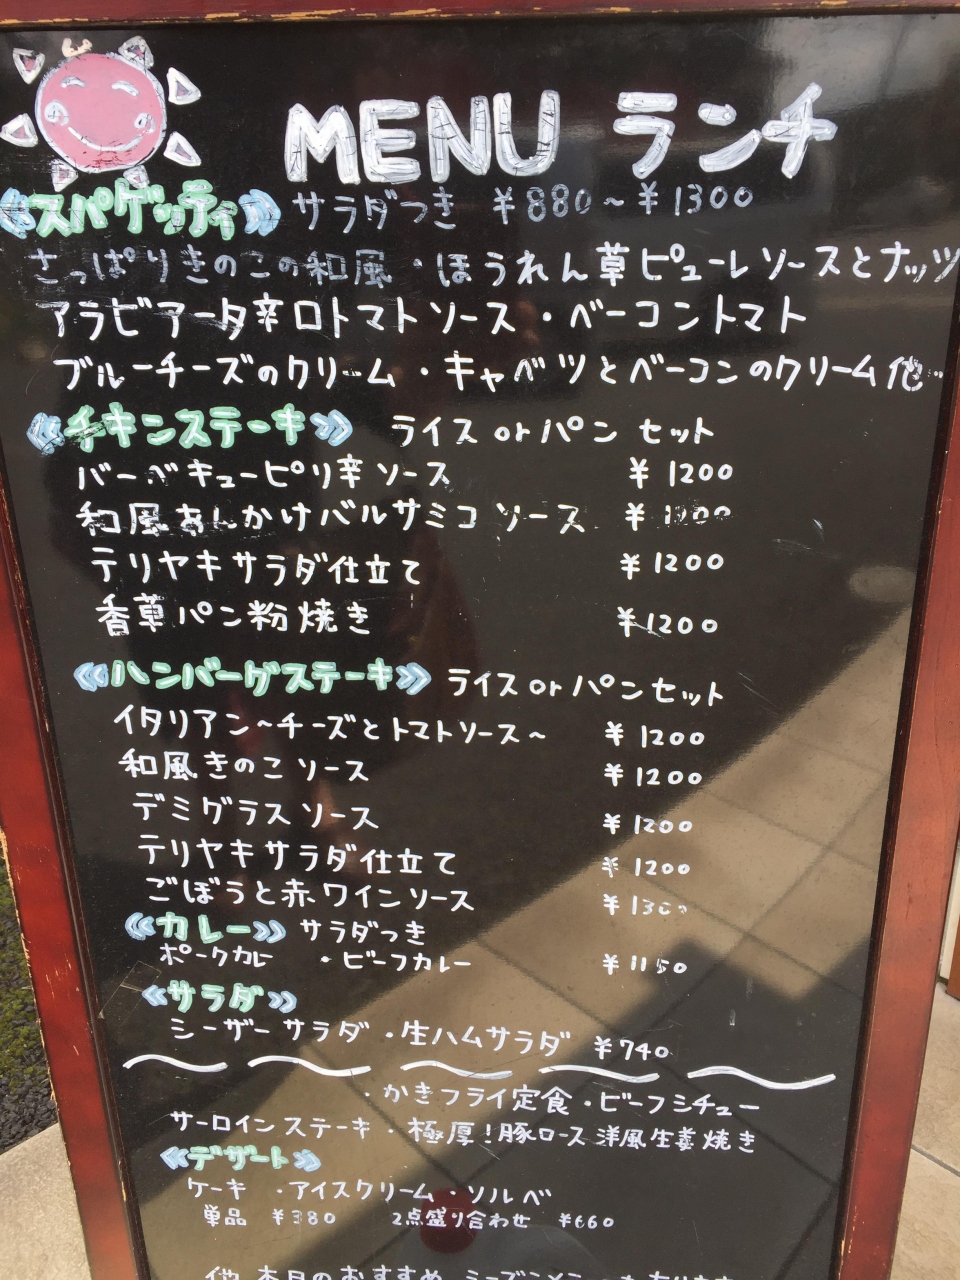 MENU ランチ
《スパゲッティ》 サラダつき ¥880~¥1300
さっぱりきのこの和風・ほうれん草ピューレソースとナッツ
アラビアータ辛口トマトソース・ベーコントマト
ブルーチーズのクリーム・キャベツとベーコンのクリーム他…
《チキンステーキ》 ライス or パン セット
バーベキューピリ辛ソース ¥1200
和風あんかけバルサミコソース ¥
テリヤキサラダ仕立て ¥1200
香草パン粉焼き ¥1200
《ハンバーグステーキ》 ライス or パンセット
イタリアン~チーズとトマトソース~ ¥1200
和風きのこソース ¥1200
デミグラスソース ¥1200
テリヤキサラダ仕立て ¥1200
ごぼうと赤ワインソース ¥1300
《カレー》 サラダつき
ポークカレー ・ビーフカレー ¥1150
《サラダ》
シーザーサラダ・生ハムサラダ ¥740
・かきフライ定食・ビーフシチュー
サーロインステーキ・極厚!豚ロース洋風生姜焼き
《デザート》
ケーキ ・アイスクリーム・ソルベ
単品 ¥380 2点盛り合わせ ¥660
他 本日のおすすめ